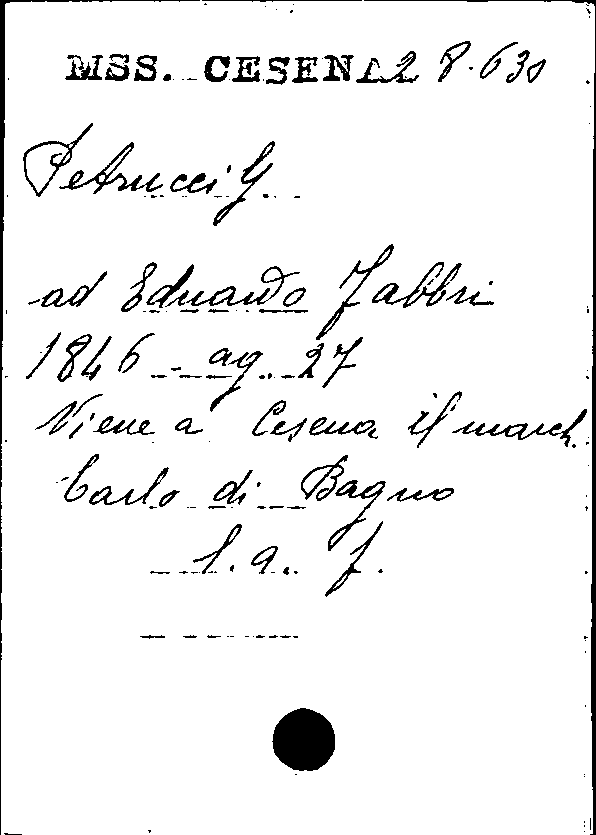 MSS. CESENA 28.630
Petrucci G.
ad Eduardo Fabbri
1846 - ag. 27
Viene a Cesena il march.
Carlo di Bagno
l. a. f.